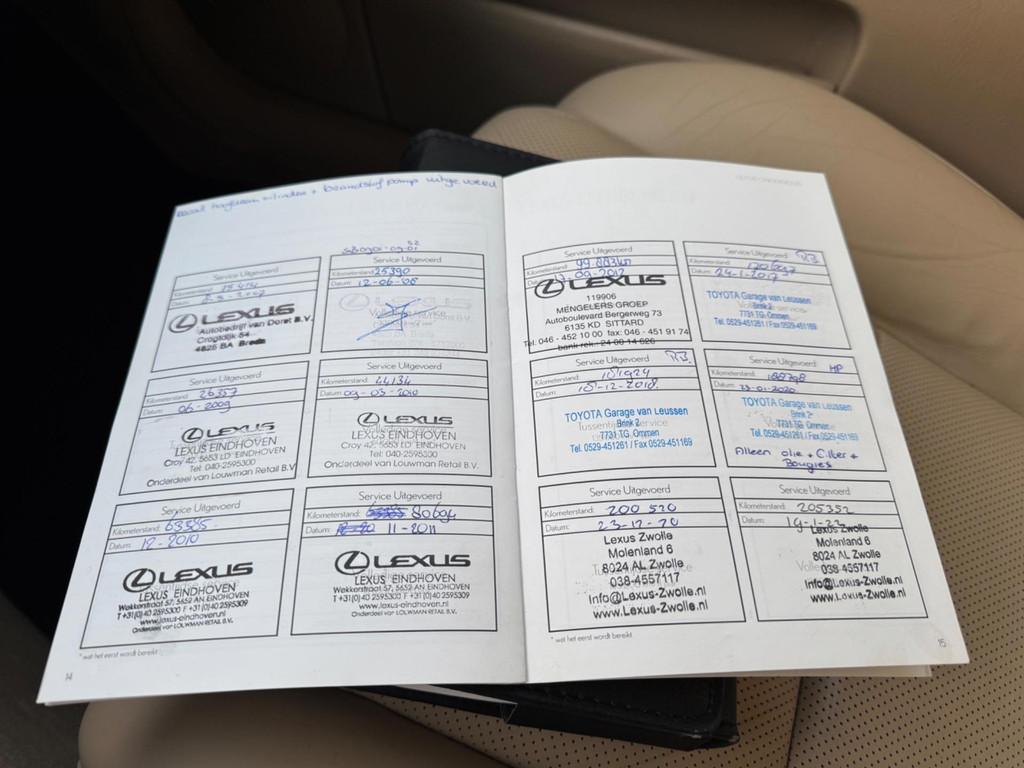 + brandstof pomp
Service Uitgevoerd
Kilometerstand:
Datum:
LEXUS
Autobedrijf van Dorst B.V.
Crogtdijk 54
4825 BA Breda
Service Uitgevoerd
Kilometerstand: 25390
Datum: 12-06-08
Service Uitgevoerd
Kilometerstand: 26357
Datum: 06-2009
LEXUS
LEXUS EINDHOVEN
Croy 42, 5653 LD EINDHOVEN
Tel: 040-2595300
Onderdeel van Louwman Retail B.V.
Service Uitgevoerd
Kilometerstand: 44134
Datum: 03-05-2010
LEXUS
LEXUS EINDHOVEN
Croy 42, 5653 LD EINDHOVEN
Tel: 040-2595300
Onderdeel van Louwman Retail B.V.
Service Uitgevoerd
Kilometerstand: 63385
Datum: 12-2010
LEXUS
LEXUS EINDHOVEN
Wekkerstraat 57, 5652 AN EINDHOVEN
T +31(0)40 2595300 F +31(0)40 2595309
www.lexus-eindhoven.nl
Onderdeel van LOUWMAN RETAIL B.V.
Service Uitgevoerd
Kilometerstand: 80604
Datum: 11-2011
LEXUS
LEXUS EINDHOVEN
Wekkerstraat 57, 5652 AN EINDHOVEN
T +31(0)40 2595300 F +31(0)40 2595309
www.lexus-eindhoven.nl
Onderdeel van LOUWMAN RETAIL B.V.
* wat het eerst wordt bereikt
14
Service Uitgevoerd
Kilometerstand: 99.883km
Datum: 17-09-2012
LEXUS
119906
MENGELERS GROEP
Autoboulevard Bergerweg 73
6135 KD SITTARD
Tel. 046 - 452 10 00 fax: 046 - 451 91 74
bank rek.: 24 00 14 626
Service Uitgevoerd
Kilometerstand:
Datum: 24-1-2017
TOYOTA Garage van Leussen
Brink 2
7731 TG Ommen
Tel. 0529-451261 / Fax 0529-451169
Service Uitgevoerd
Kilometerstand: 181924
Datum: 18-12-2018
TOYOTA Garage van Leussen
Brink 2
7731 TG Ommen
Tel. 0529-451261 / Fax 0529-451169
Service Uitgevoerd HP
Kilometerstand:
Datum: 23-01-2020
TOYOTA Garage van Leussen
Brink 2
7731 TG Ommen
Tel. 0529-451261 / Fax 0529-451169
Alleen olie + Filter +
Bougies
Service Uitgevoerd
Kilometerstand: 200 520
Datum: 23-12-20
Lexus Zwolle
Molenland 6
8024 AL Zwolle
038-4557117
Info@Lexus-Zwolle.nl
www.Lexus-Zwolle.nl
Service Uitgevoerd
Kilometerstand: 205352
Datum: 19-1-22
Lexus Zwolle
Molenland 6
8024 AL Zwolle
038-4557117
Info@Lexus-Zwolle.nl
www.Lexus-Zwolle.nl
* wat het eerst wordt bereikt
15